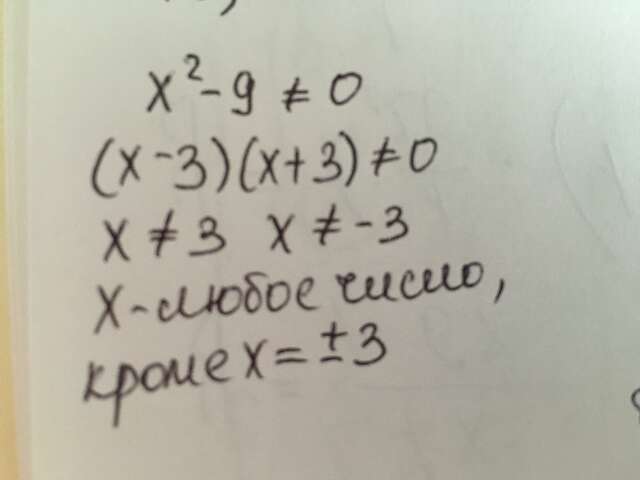 x²-9 ≠ 0
(x-3)(x+3)≠0
x ≠ 3 x ≠ -3
x-любое число,
кроме x = ±3